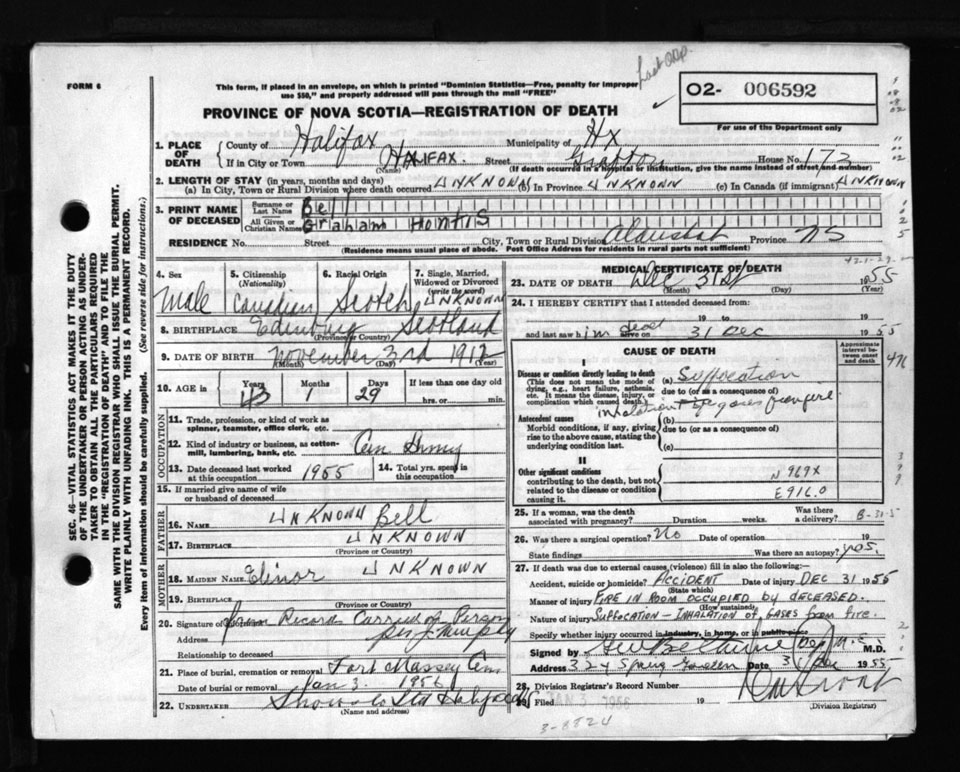 FORM 6
This form, if placed in an envelope, on which is printed "Dominion Statistics—Free, penalty for improper
use $50," and properly addressed will pass through the mail "FREE"
O2- 006592
For use of the Department only
PROVINCE OF NOVA SCOTIA—REGISTRATION OF DEATH
1. PLACE OF DEATH County of Halifax Municipality of Hx
If in City or Town HALIFAX. Street Grafton House No. 173
(Name) (If death occurred in a hospital or institution, give name instead of street and number)
2. LENGTH OF STAY (in years, months and days)
(a) In City, Town or Rural Division where death occurred UNKNOWN (b) In Province UNKNOWN (c) In Canada (if immigrant) UNKNOWN
3. PRINT NAME OF DECEASED Surname or Last Name Bell
All Given or Christian Names Graham
RESIDENCE No. Street City, Town or Rural Division Province NS
(Residence means usual place of abode. Post Office Address for residents in rural parts not sufficient)
4. Sex Male
5. Citizenship (Nationality) Canadian
6. Racial Origin Scotch
7. Single, Married, Widowed or Divorced (write the word) UNKNOWN
8. BIRTHPLACE Scotland
(Province or Country)
9. DATE OF BIRTH November 3rd 1912
(Month) (Day) (Year)
10. AGE in Years 43 Months 1 Days 29 If less than one day old hrs. or min.
OCCUPATION
11. Trade, profession, or kind of work as spinner, teamster, office clerk, etc.
12. Kind of industry or business, as cotton-mill, lumbering, bank, etc. Army
13. Date deceased last worked at this occupation 1955
14. Total yrs. spent in this occupation
15. If married give name of wife or husband of deceased
FATHER
16. NAME UNKNOWN Bell
17. BIRTHPLACE UNKNOWN
(Province or Country)
MOTHER
18. MAIDEN NAME Elinor UNKNOWN
19. BIRTHPLACE
(Province or Country)
20. Signature of From Record Carried on Person
Address per J Murphy
Relationship to deceased
21. Place of burial, cremation or removal Fort Massey Cem
Date of burial or removal Jan 3. 1956
22. UNDERTAKER Snow & Co Ltd Halifax NS
(Name and address)
MEDICAL CERTIFICATE OF DEATH
23. DATE OF DEATH Dec 31st 1955
(Month) (Day) (Year)
24. I HEREBY CERTIFY that I attended deceased from:
19 to 19
and last saw him dead alive on 31 Dec 1955
CAUSE OF DEATH
Approximate interval between onset and death
I
Disease or condition directly leading to death (a) Suffocation
(This does not mean the mode of dying, e.g., heart failure, asthenia, etc. It means the disease, injury, or complication which caused death.) due to (or as a consequence of)
inhalation of gases from fire.
Antecedent causes (b)
Morbid conditions, if any, giving rise to the above cause, stating the underlying condition last. due to (or as a consequence of)
(c)
II
Other significant conditions contributing to the death, but not related to the disease or condition causing it.
N969X
E916.0
25. If a woman, was the death associated with pregnancy? Duration weeks. Was there a delivery?
26. Was there a surgical operation? No Date of operation 19
State findings Was there an autopsy? yes.
27. If death was due to external causes (violence) fill in also the following:
Accident, suicide or homicide? ACCIDENT Date of injury DEC 31 1955
(State which)
Manner of injury FIRE IN ROOM OCCUPIED BY DECEASED.
(How sustained)
Nature of injury SUFFOCATION - INHALATION OF GASES from FIRE.
Specify whether injury occurred in industry, in home, or in public place
Signed by M.E. M.D.
Address 324 Spring Garden Date 31 Dec 1955
28. Division Registrar's Record Number
29. Filed JAN 3 1956 19
(Division Registrar)
3-8824
SEC. 46—VITAL STATISTICS ACT MAKES IT THE DUTY
OF THE UNDERTAKER OR PERSON ACTING AS UNDER-
TAKER TO OBTAIN ALL THE PARTICULARS REQUIRED
IN THE "REGISTRATION OF DEATH" AND TO FILE THE
SAME WITH THE DIVISION REGISTRAR WHO SHALL ISSUE THE BURIAL PERMIT.
WRITE PLAINLY WITH UNFADING INK. THIS IS A PERMANENT RECORD.
Every item of information should be carefully supplied. (See reverse side for instructions.)